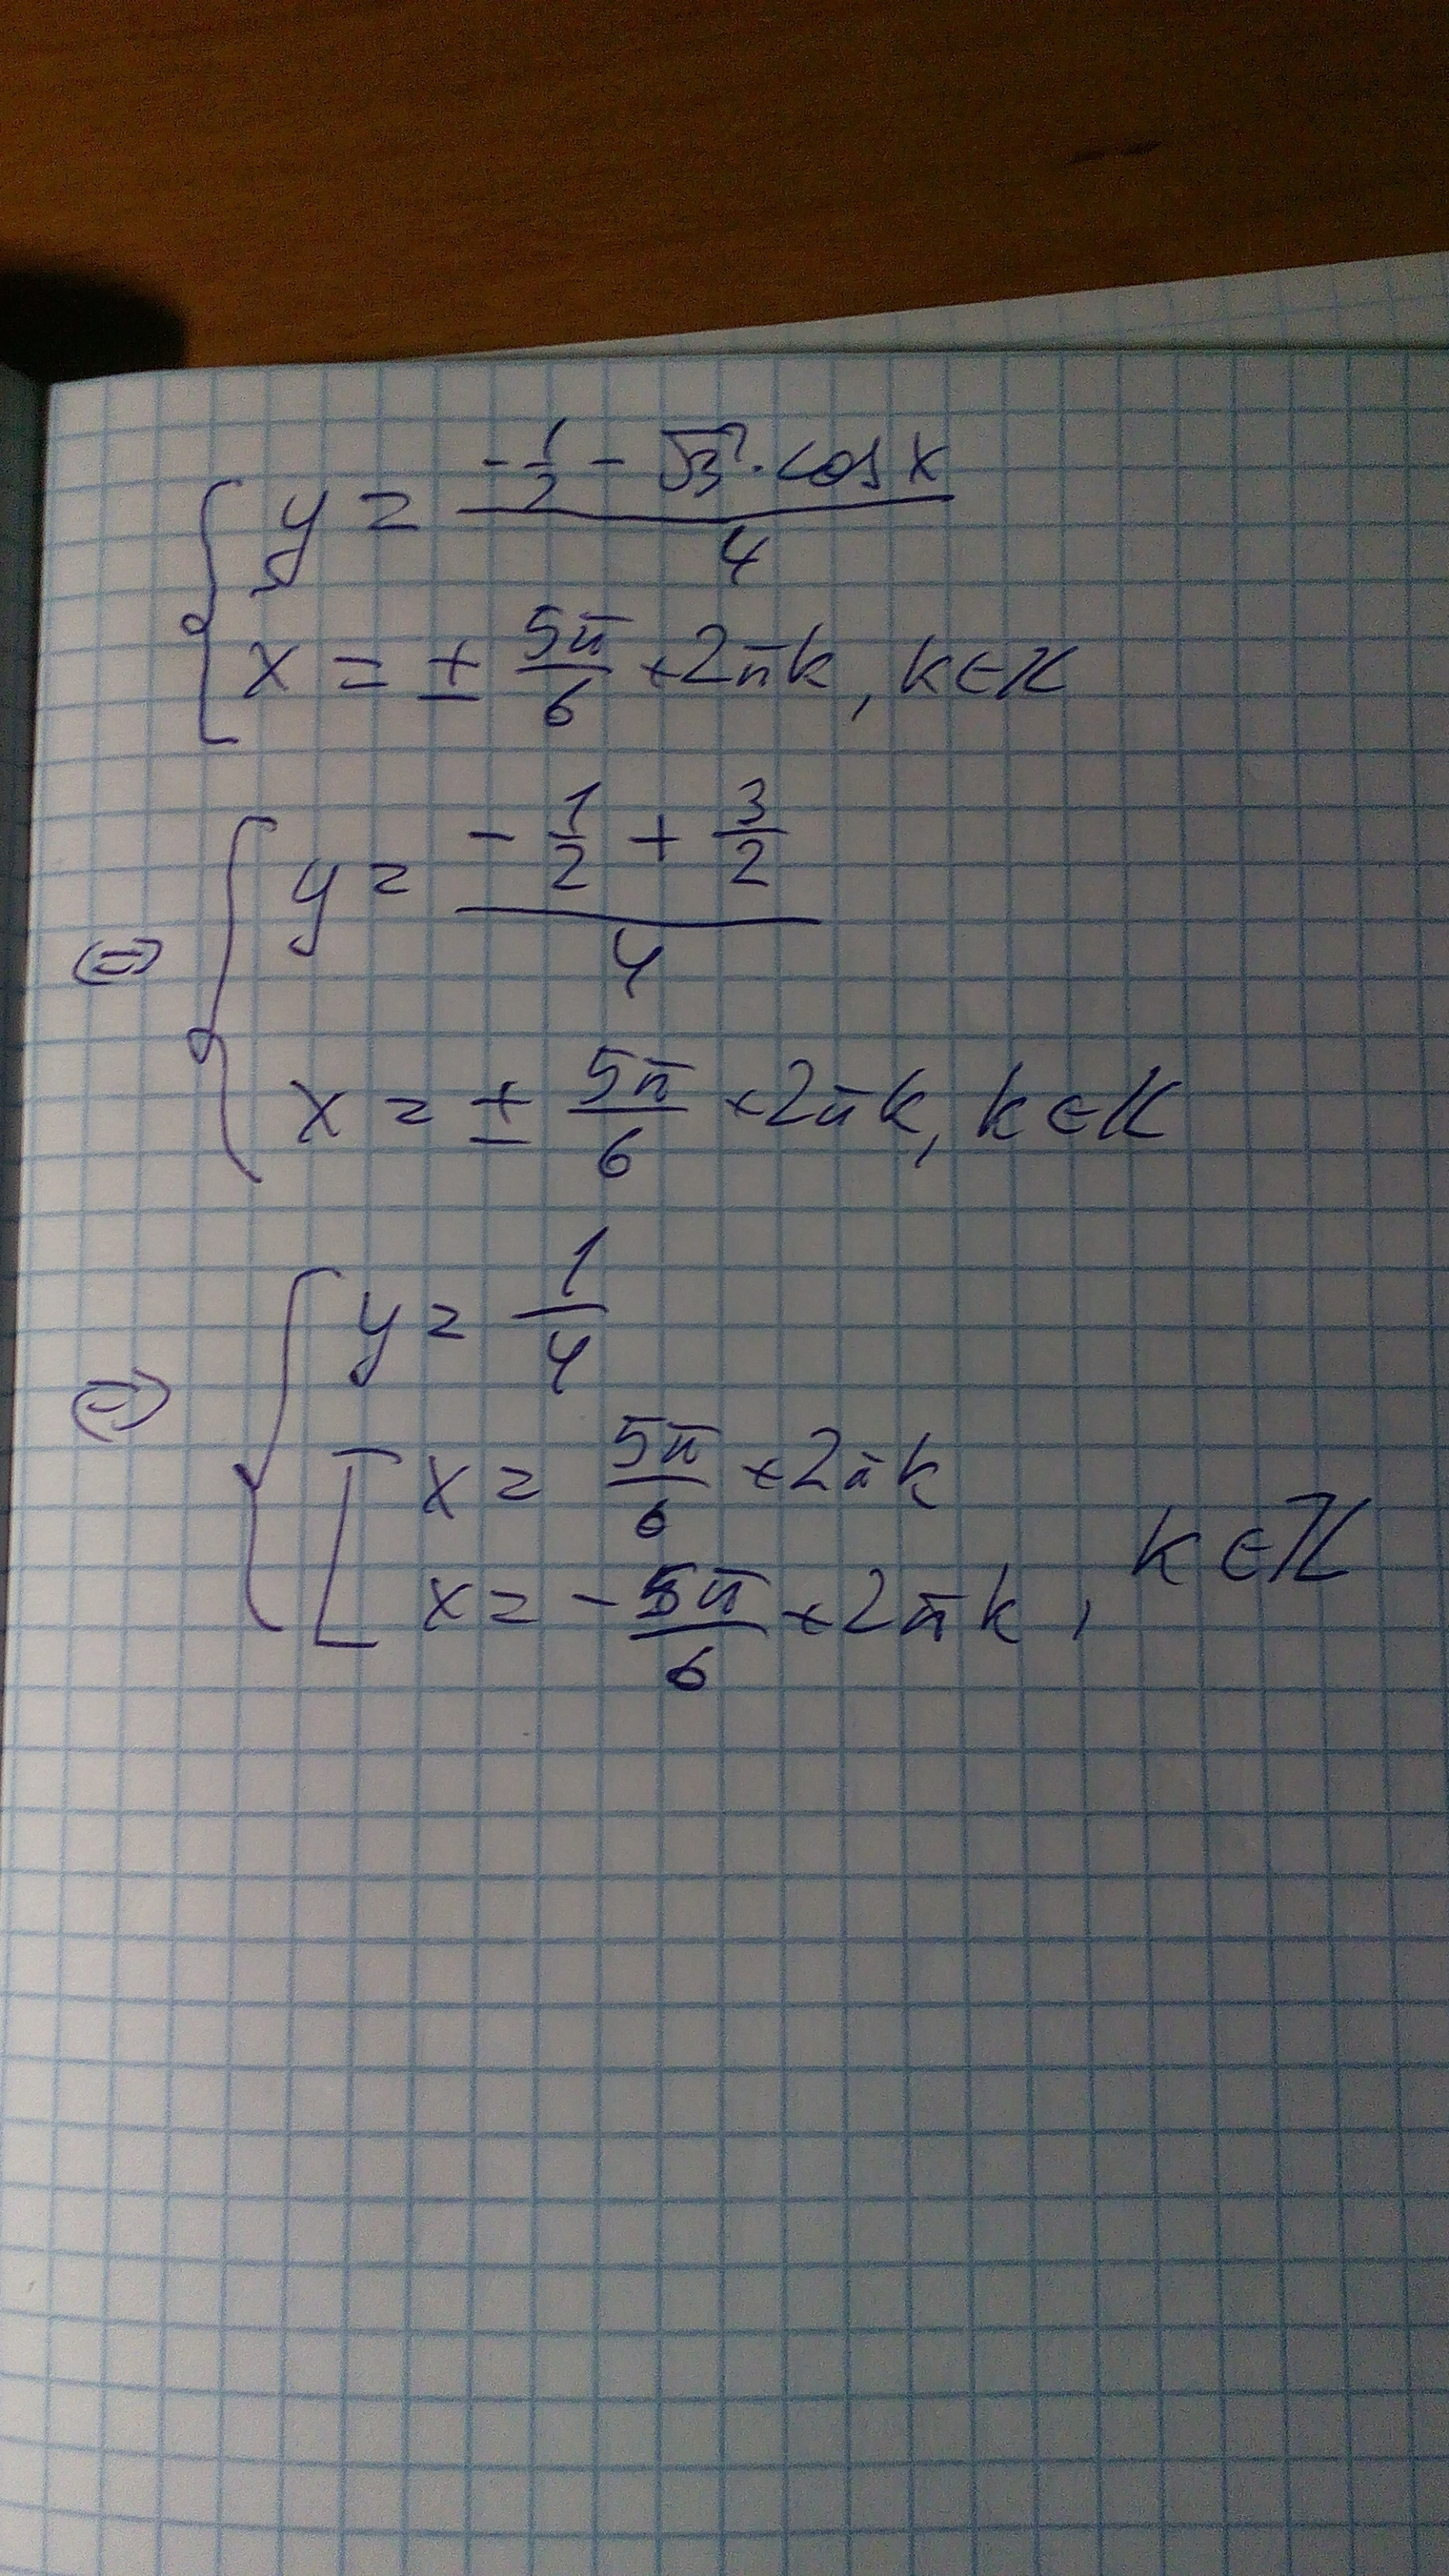 { y = (-1/2 - √3 · cos x)/4
x = ± 5π/6 + 2πk, k ∈ ℤ
⇔ { y = (-1/2 + 3/2)/4
x = ± 5π/6 + 2πk, k ∈ ℤ
⇔ { y = 1/4
[ x = 5π/6 + 2πk
x = - 5π/6 + 2πk, k ∈ ℤ